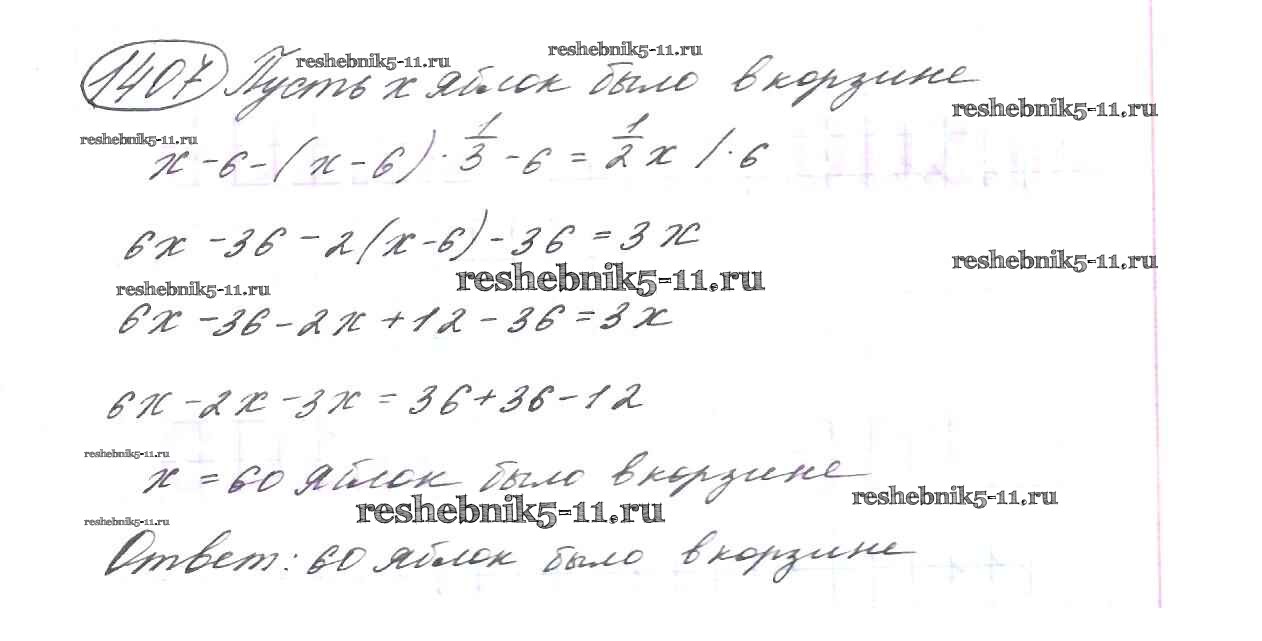 reshebnik5-11.ru
reshebnik5-11.ru
1407 Пусть x яблок было в корзине
reshebnik5-11.ru
reshebnik5-11.ru
x - 6 - (x - 6) · 1/3 - 6 = 1/2 x / · 6
6x - 36 - 2(x - 6) - 36 = 3x
reshebnik5-11.ru
reshebnik5-11.ru
reshebnik5-11.ru
6x - 36 - 2x + 12 - 36 = 3x
6x - 2x - 3x = 36 + 36 - 12
reshebnik5-11.ru
x = 60 яблок было в корзине
reshebnik5-11.ru
reshebnik5-11.ru
reshebnik5-11.ru
Ответ: 60 яблок было в корзине